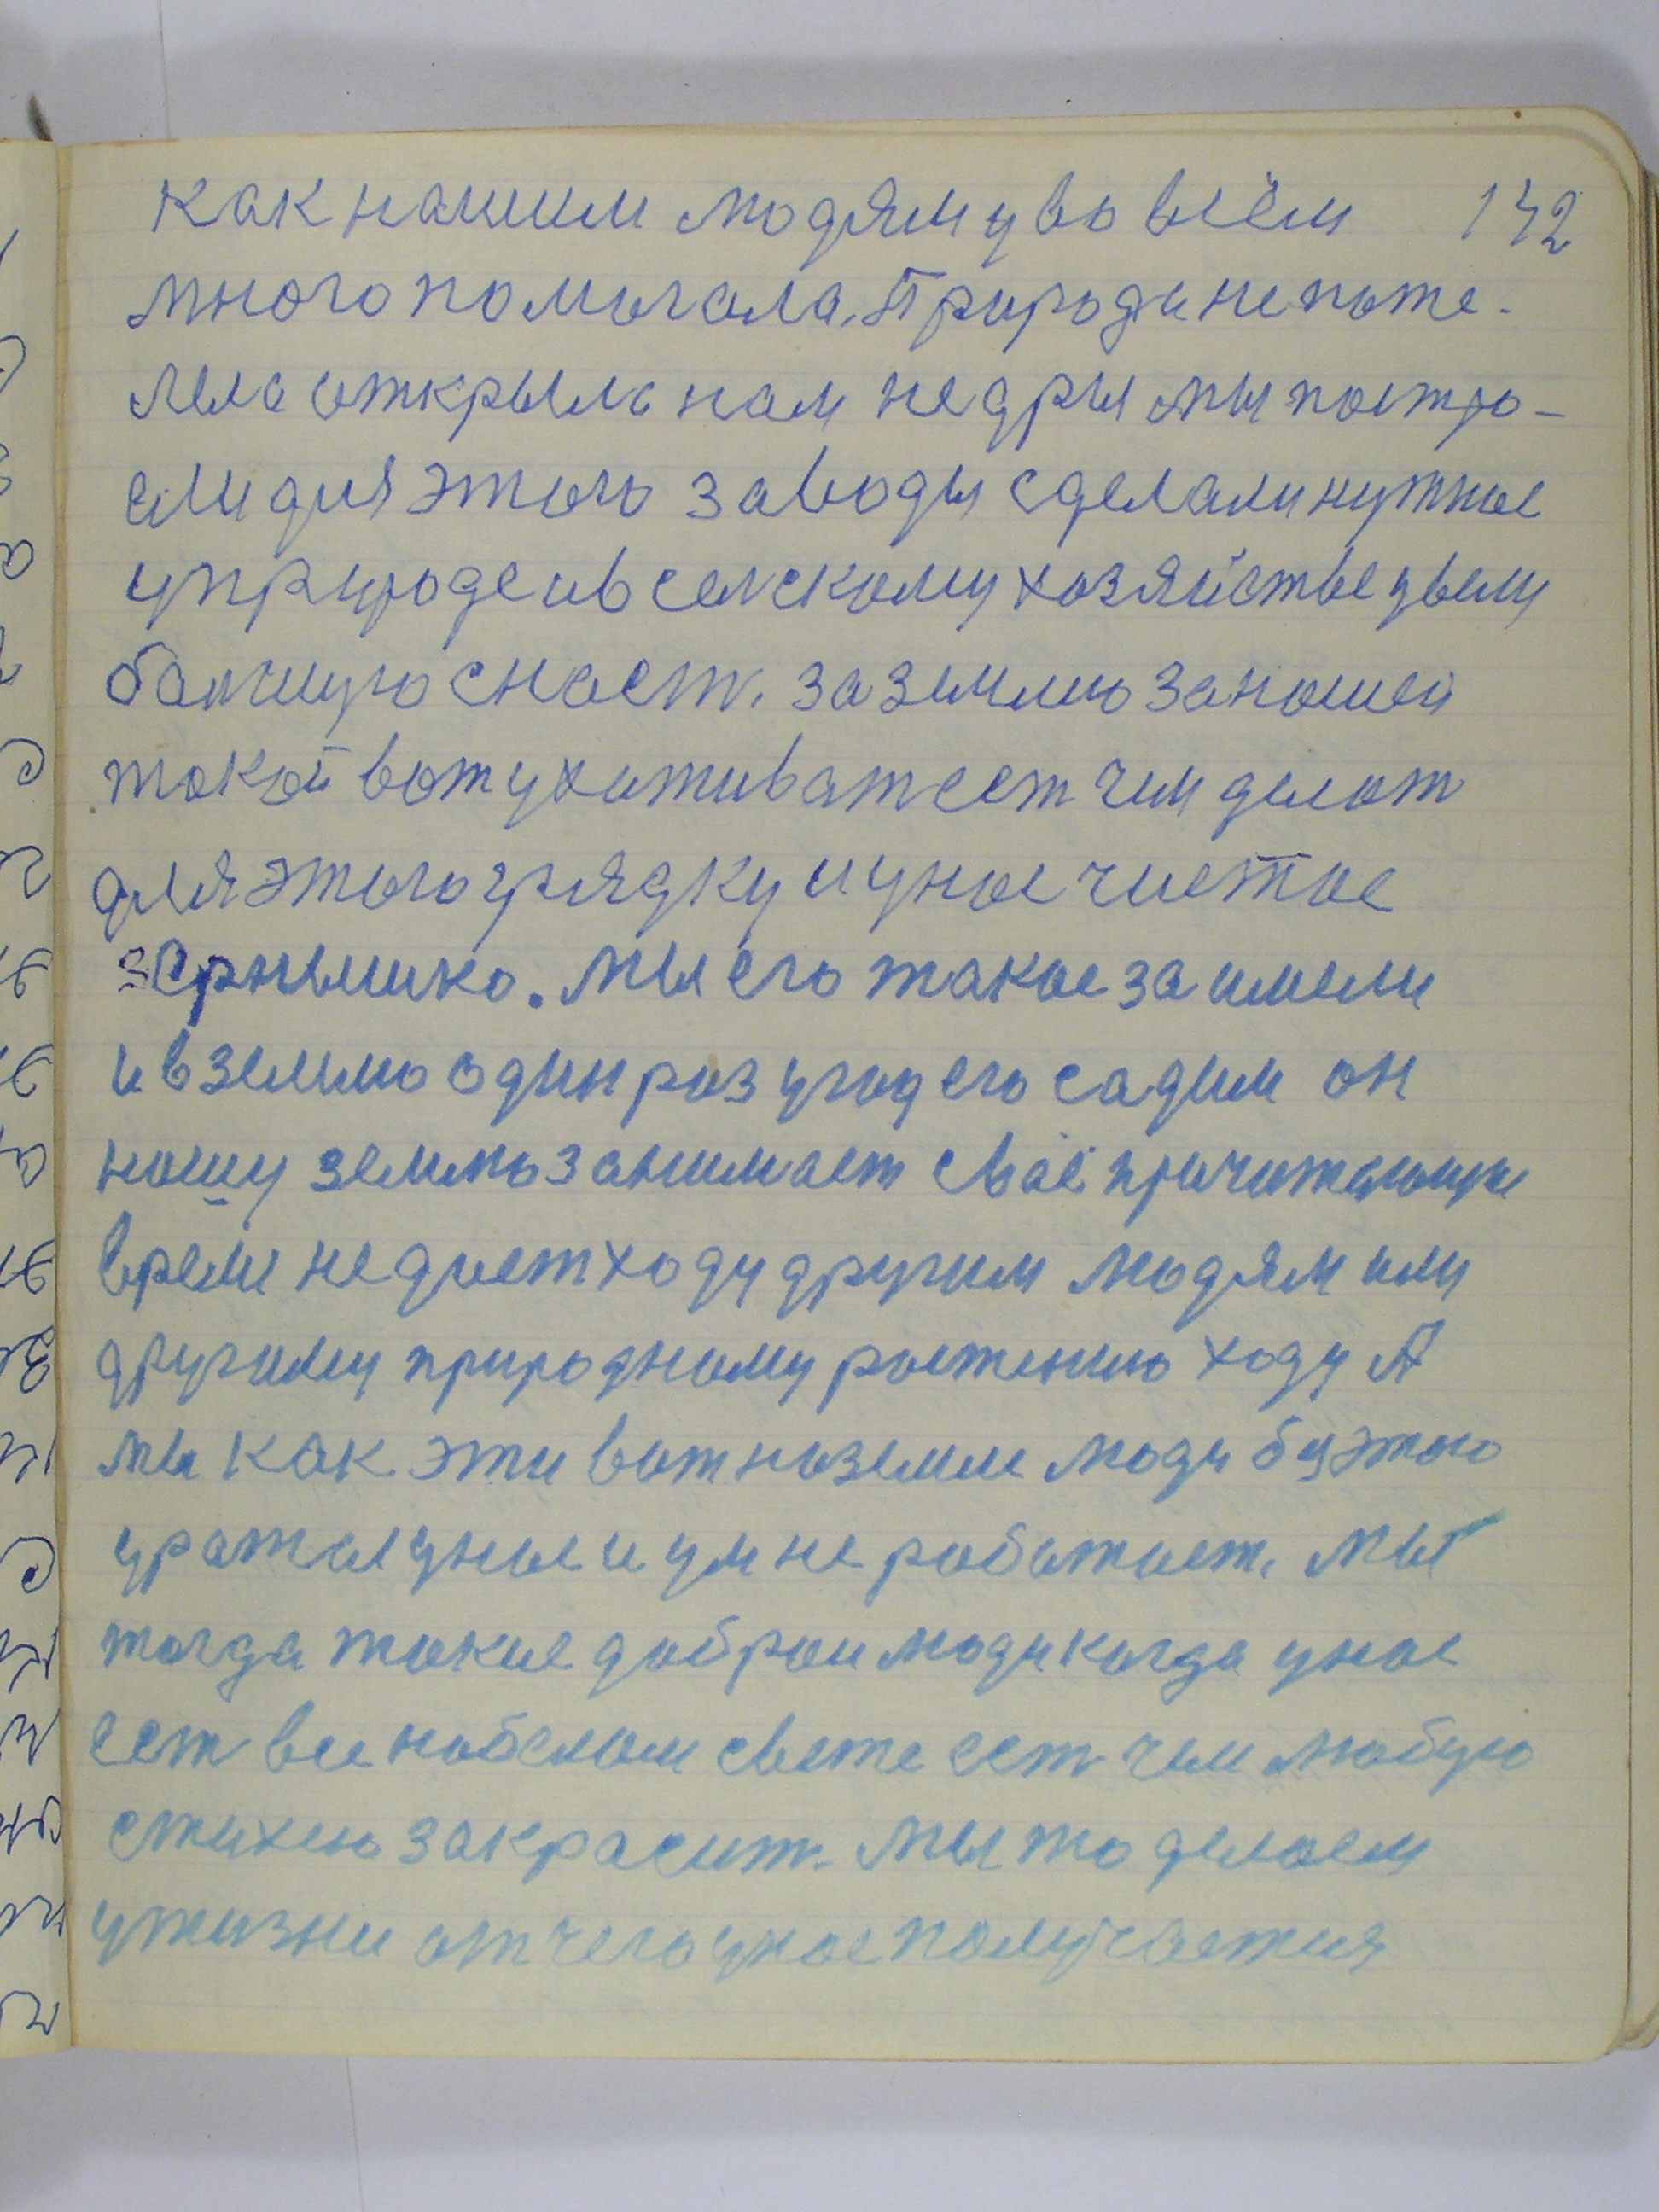 как нашим людям у во всём 142
много помогала. Природа не пожа-
лела открыла нам недры мы постро-
или для этого заводы сделали нужное
у природе и в селскому хозяйстве увели
балшую снаст. за землю за нашей
такой вот ухаживат ест чем делат
для этого грядку и у нас чистое
зернышко. мы его такое заимели
и в землю один раз у год его садим он
нашу землю занимает сваё причитающие
время не дает ходу другим людям или
другому природному растению ходу А
мы как эти вот на земле люди без этого
уражая у нас и ум не работает. мы
тогда такие добраи люди когда у нас
ест все на белом свете ест чем любую
стихею закрасит. мы то делаем
у жизни от чего у нас получается